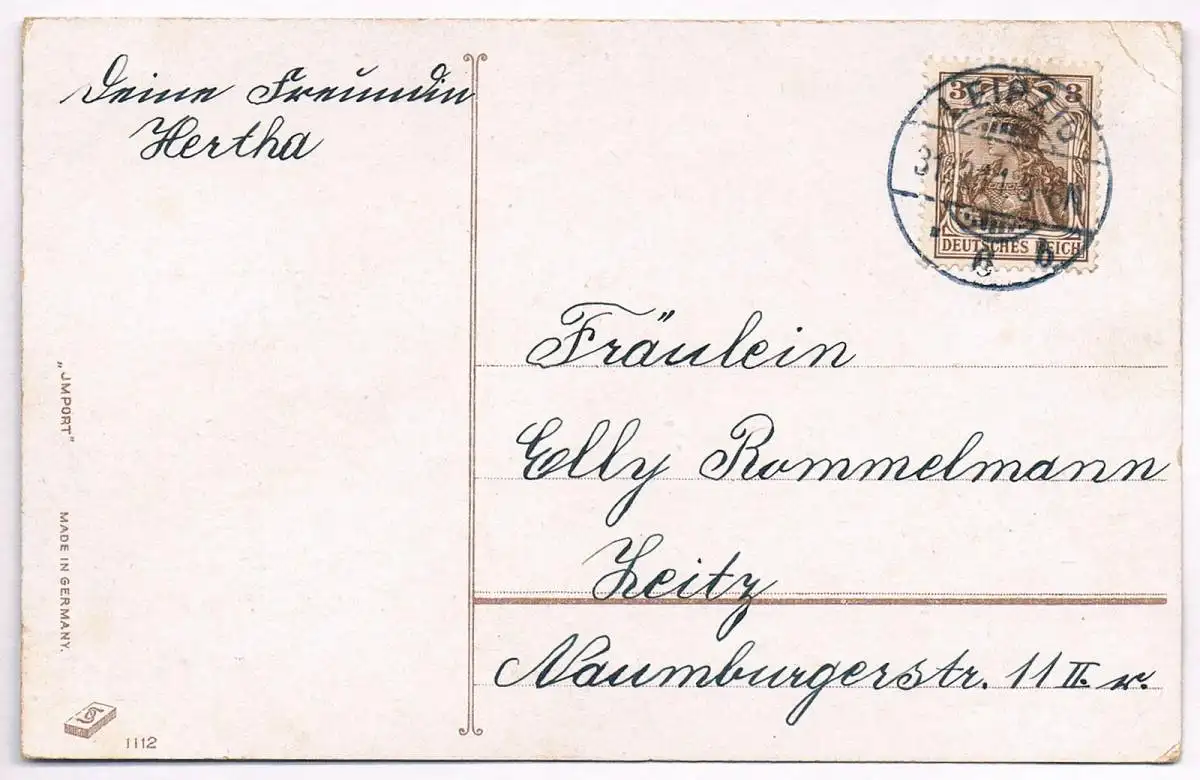 Deine Freundin
Hertha
3 3
DEUTSCHES REICH
LEIPZIG
Fräulein
Elly Rommelmann
Zeitz
Naumburgerstr. 11 II. r.
„JMPORT"
MADE IN GERMANY.
1112